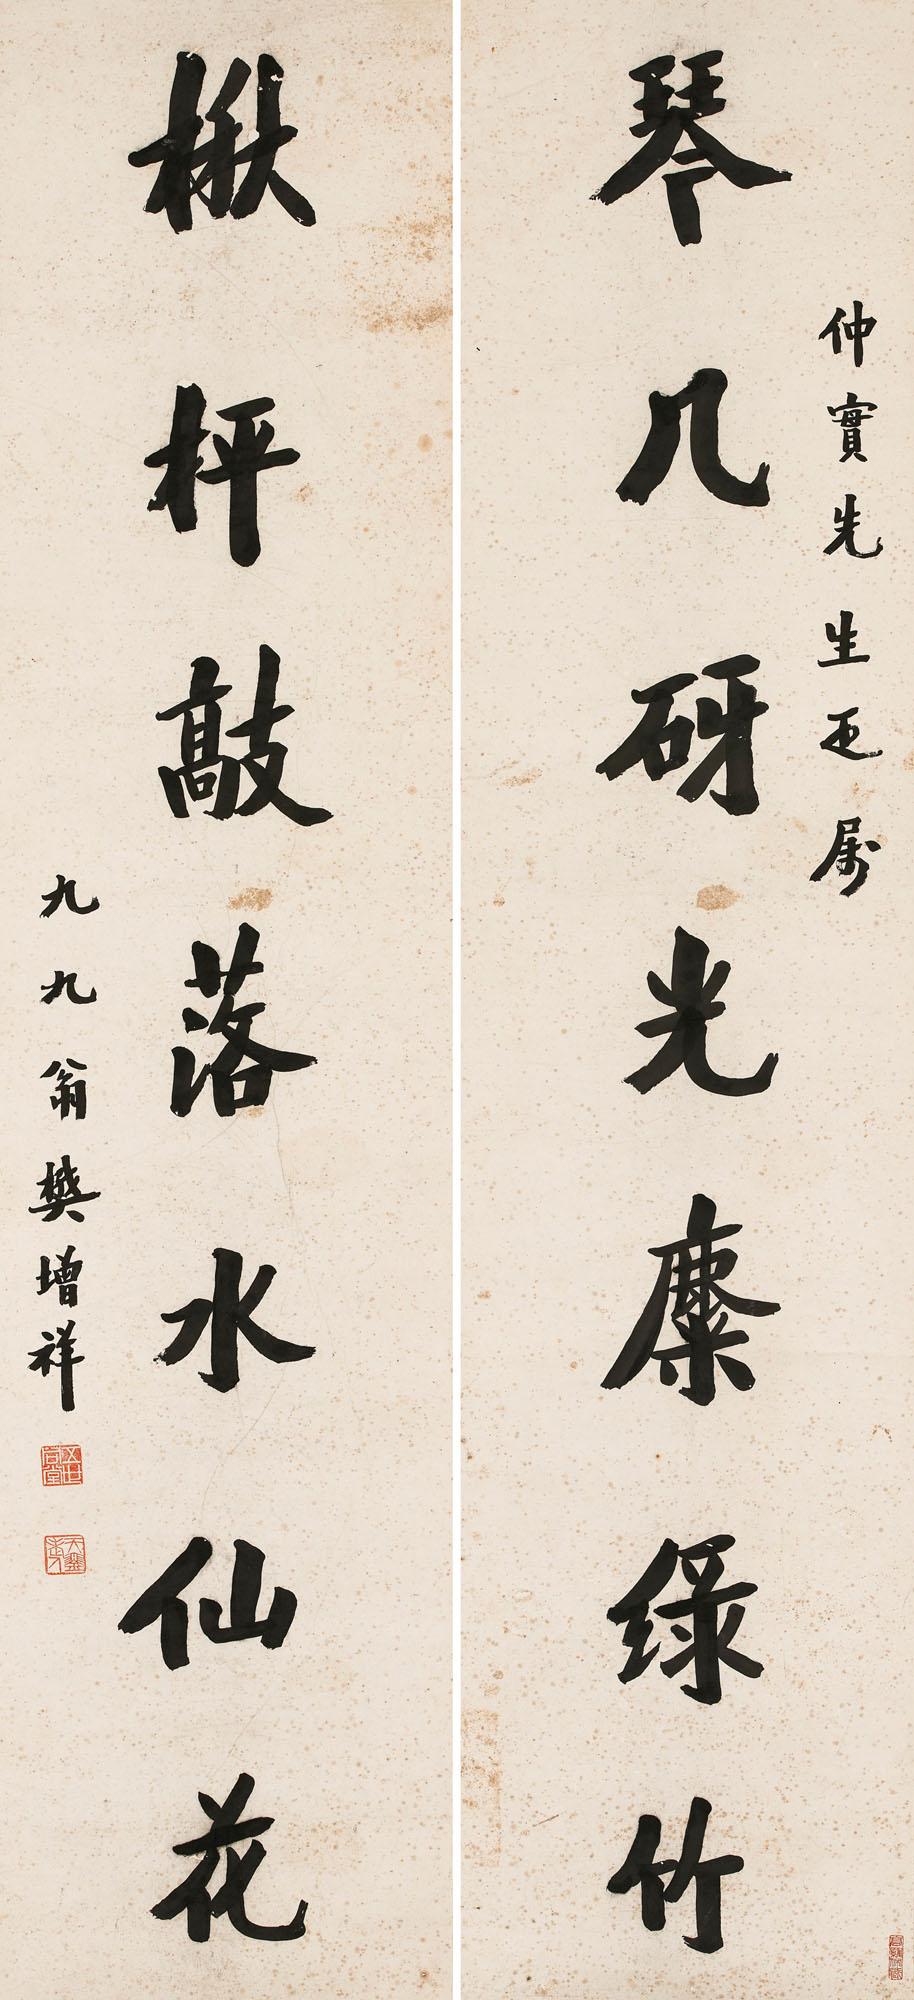 琴几砑光麋绿竹
仲實先生正属
楸枰敲落水仙花
九九翁樊增祥